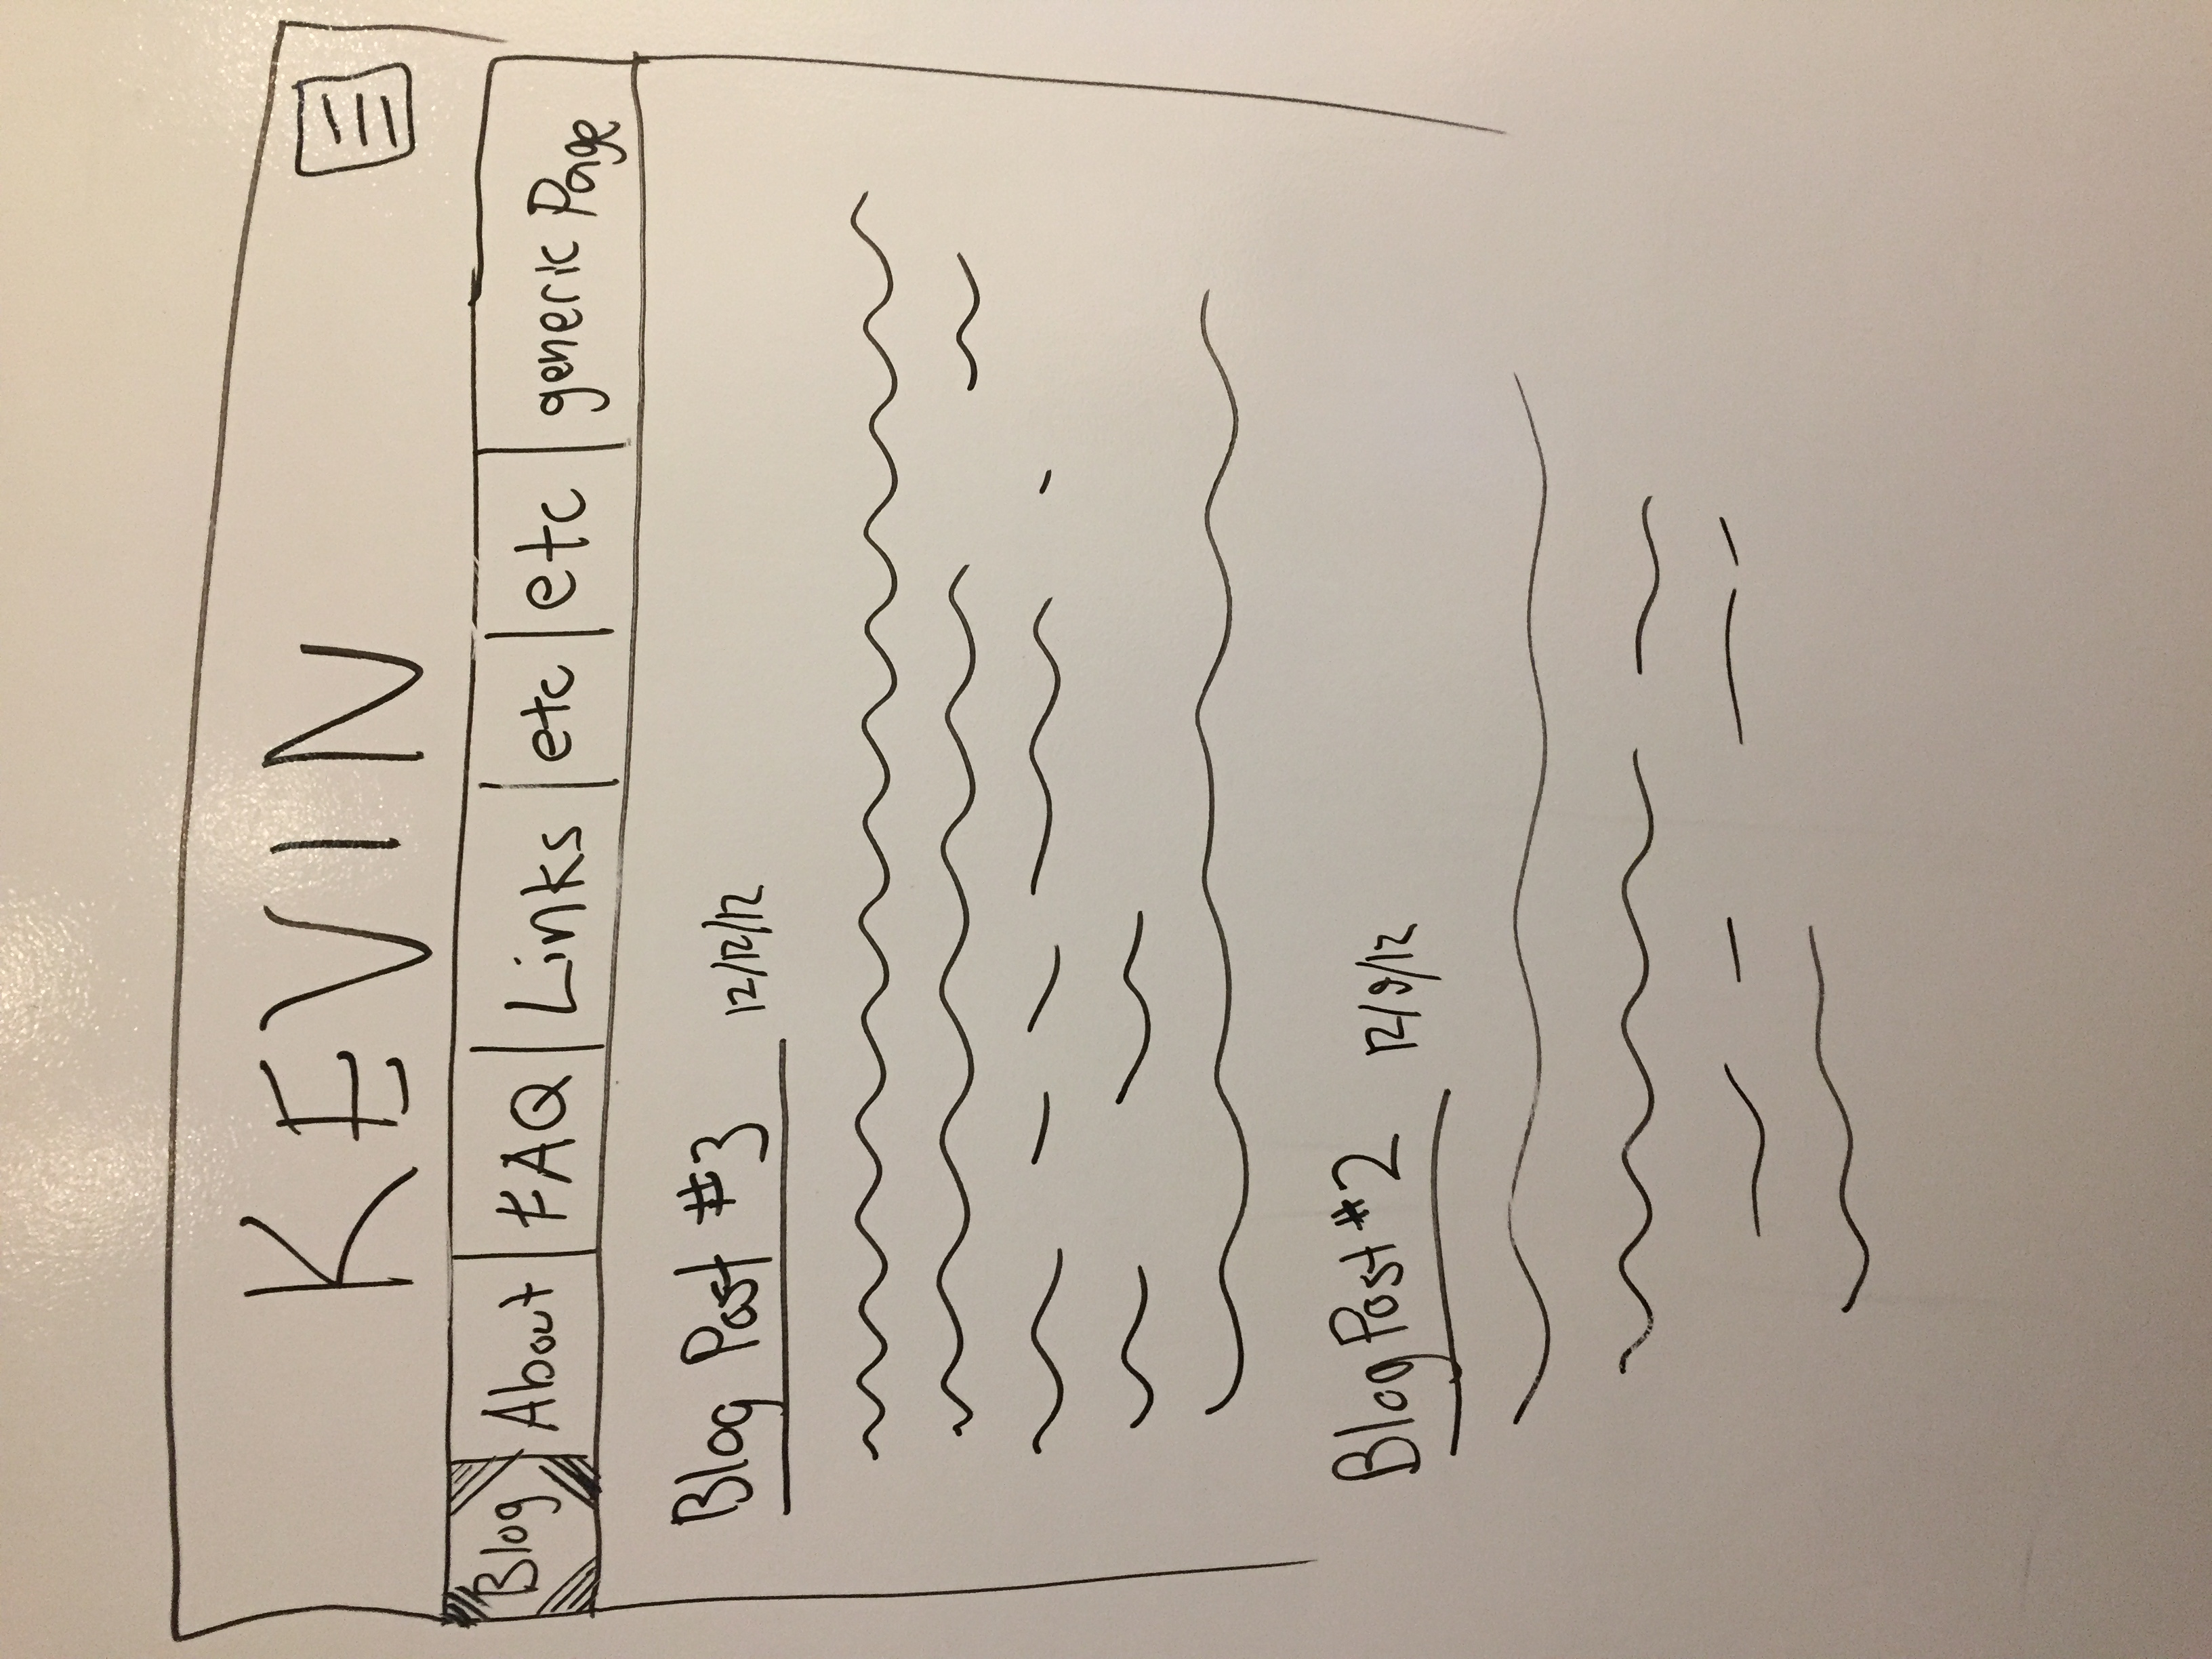 KEVIN
Blog About FAQ Links etc etc generic Page
Blog Post #3 12/12/12
Blog Post #2 12/9/12